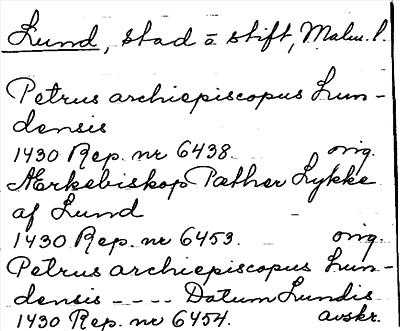 Lund, stad o stift, Malm. l.
Petrus archiepiscopus Lun-
densis
1430 Rep. nr 6438. orig.
Ærkebiskop Pæther Lykke
af Lund
1430 Rep. nr 6453. orig.
Petrus archiepiscopus Lun-
densis ---- Datum Lundis
1430 Rep. nr 6454. avskr.